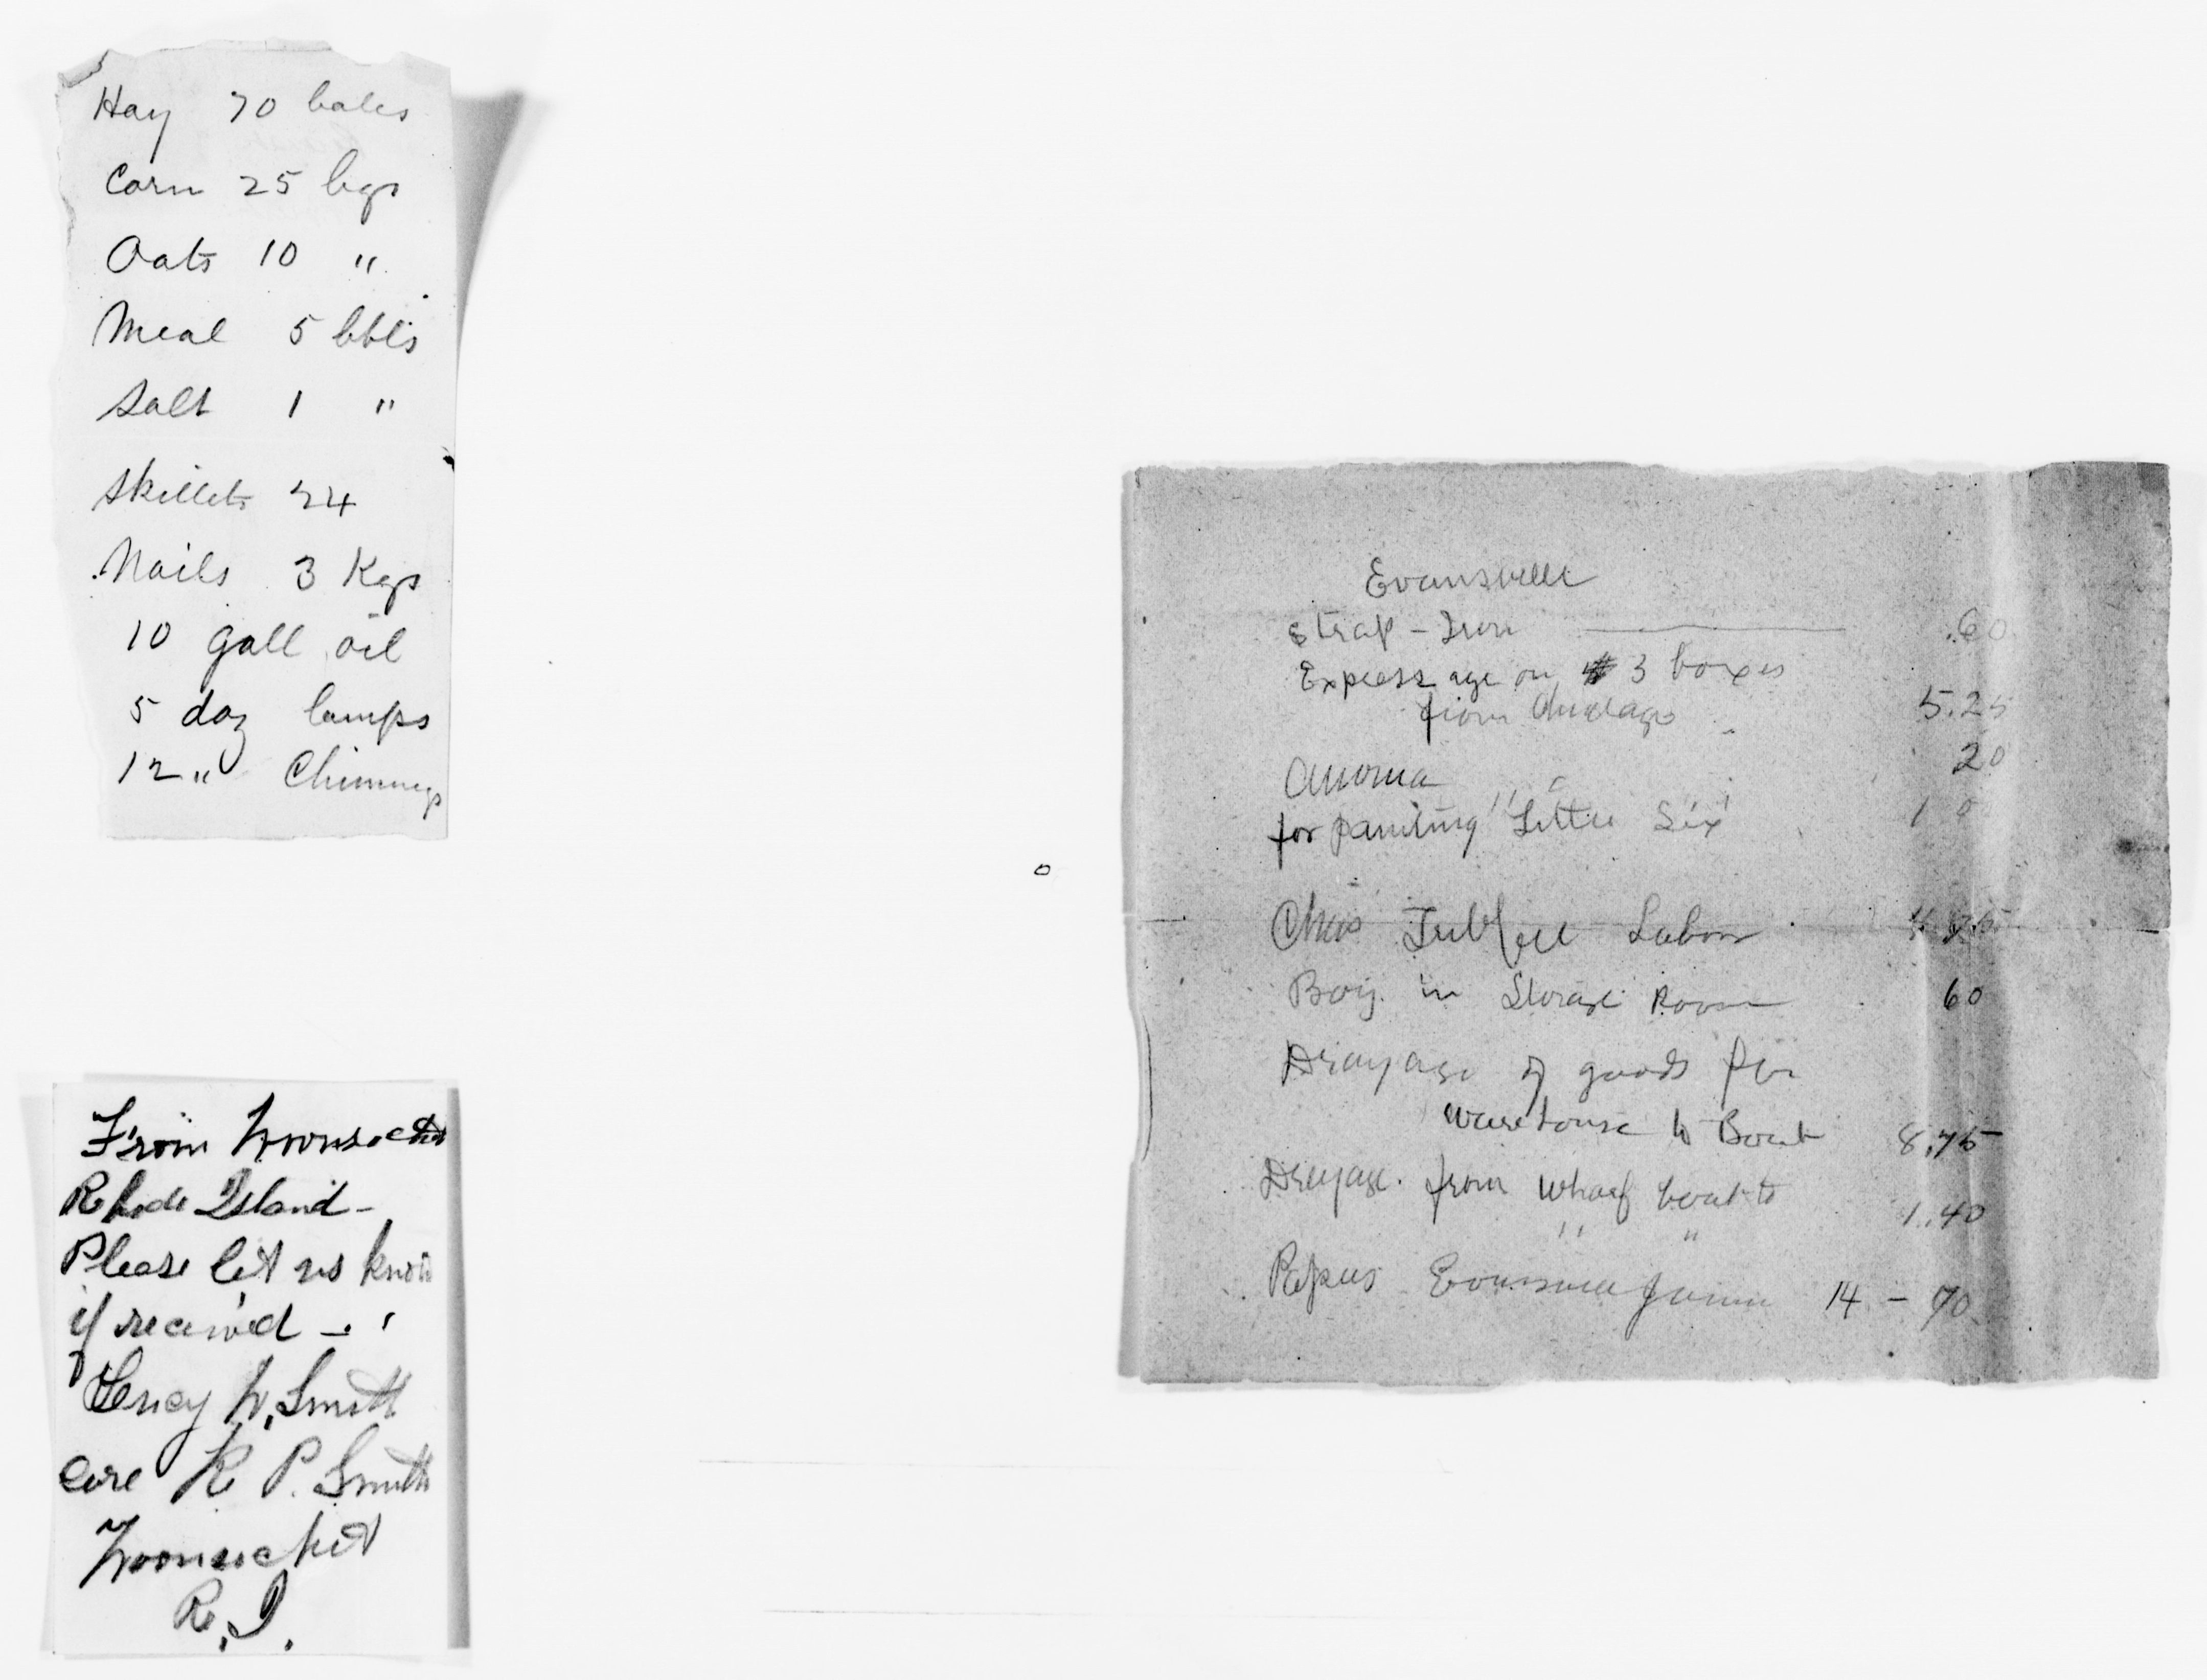 Hay 70 bales
Corn 25 bgs
Oats 10 "
Meal 5 bbls
Salt 1 "
Skillets 24
Nails 3 Kgs
10 gall oil
5 doz lamps
12 " Chimneys
From Woonsocket
Rhode Island -
Please let us know
if received -
W. Smith
care K P. Smith
Woonsocket
R. I.
Evansville
Strap - Iron .60
Expressage on 3 boxes
from Chicago 5.25
20
for painting "Little Six"
Chas Labor
Boy in Storage Room 60
Drayage of goods for
warehouse to Boat 8.75
Drayage from Wharf boat to 1.40
" "
Papers Evansville 14 - 70